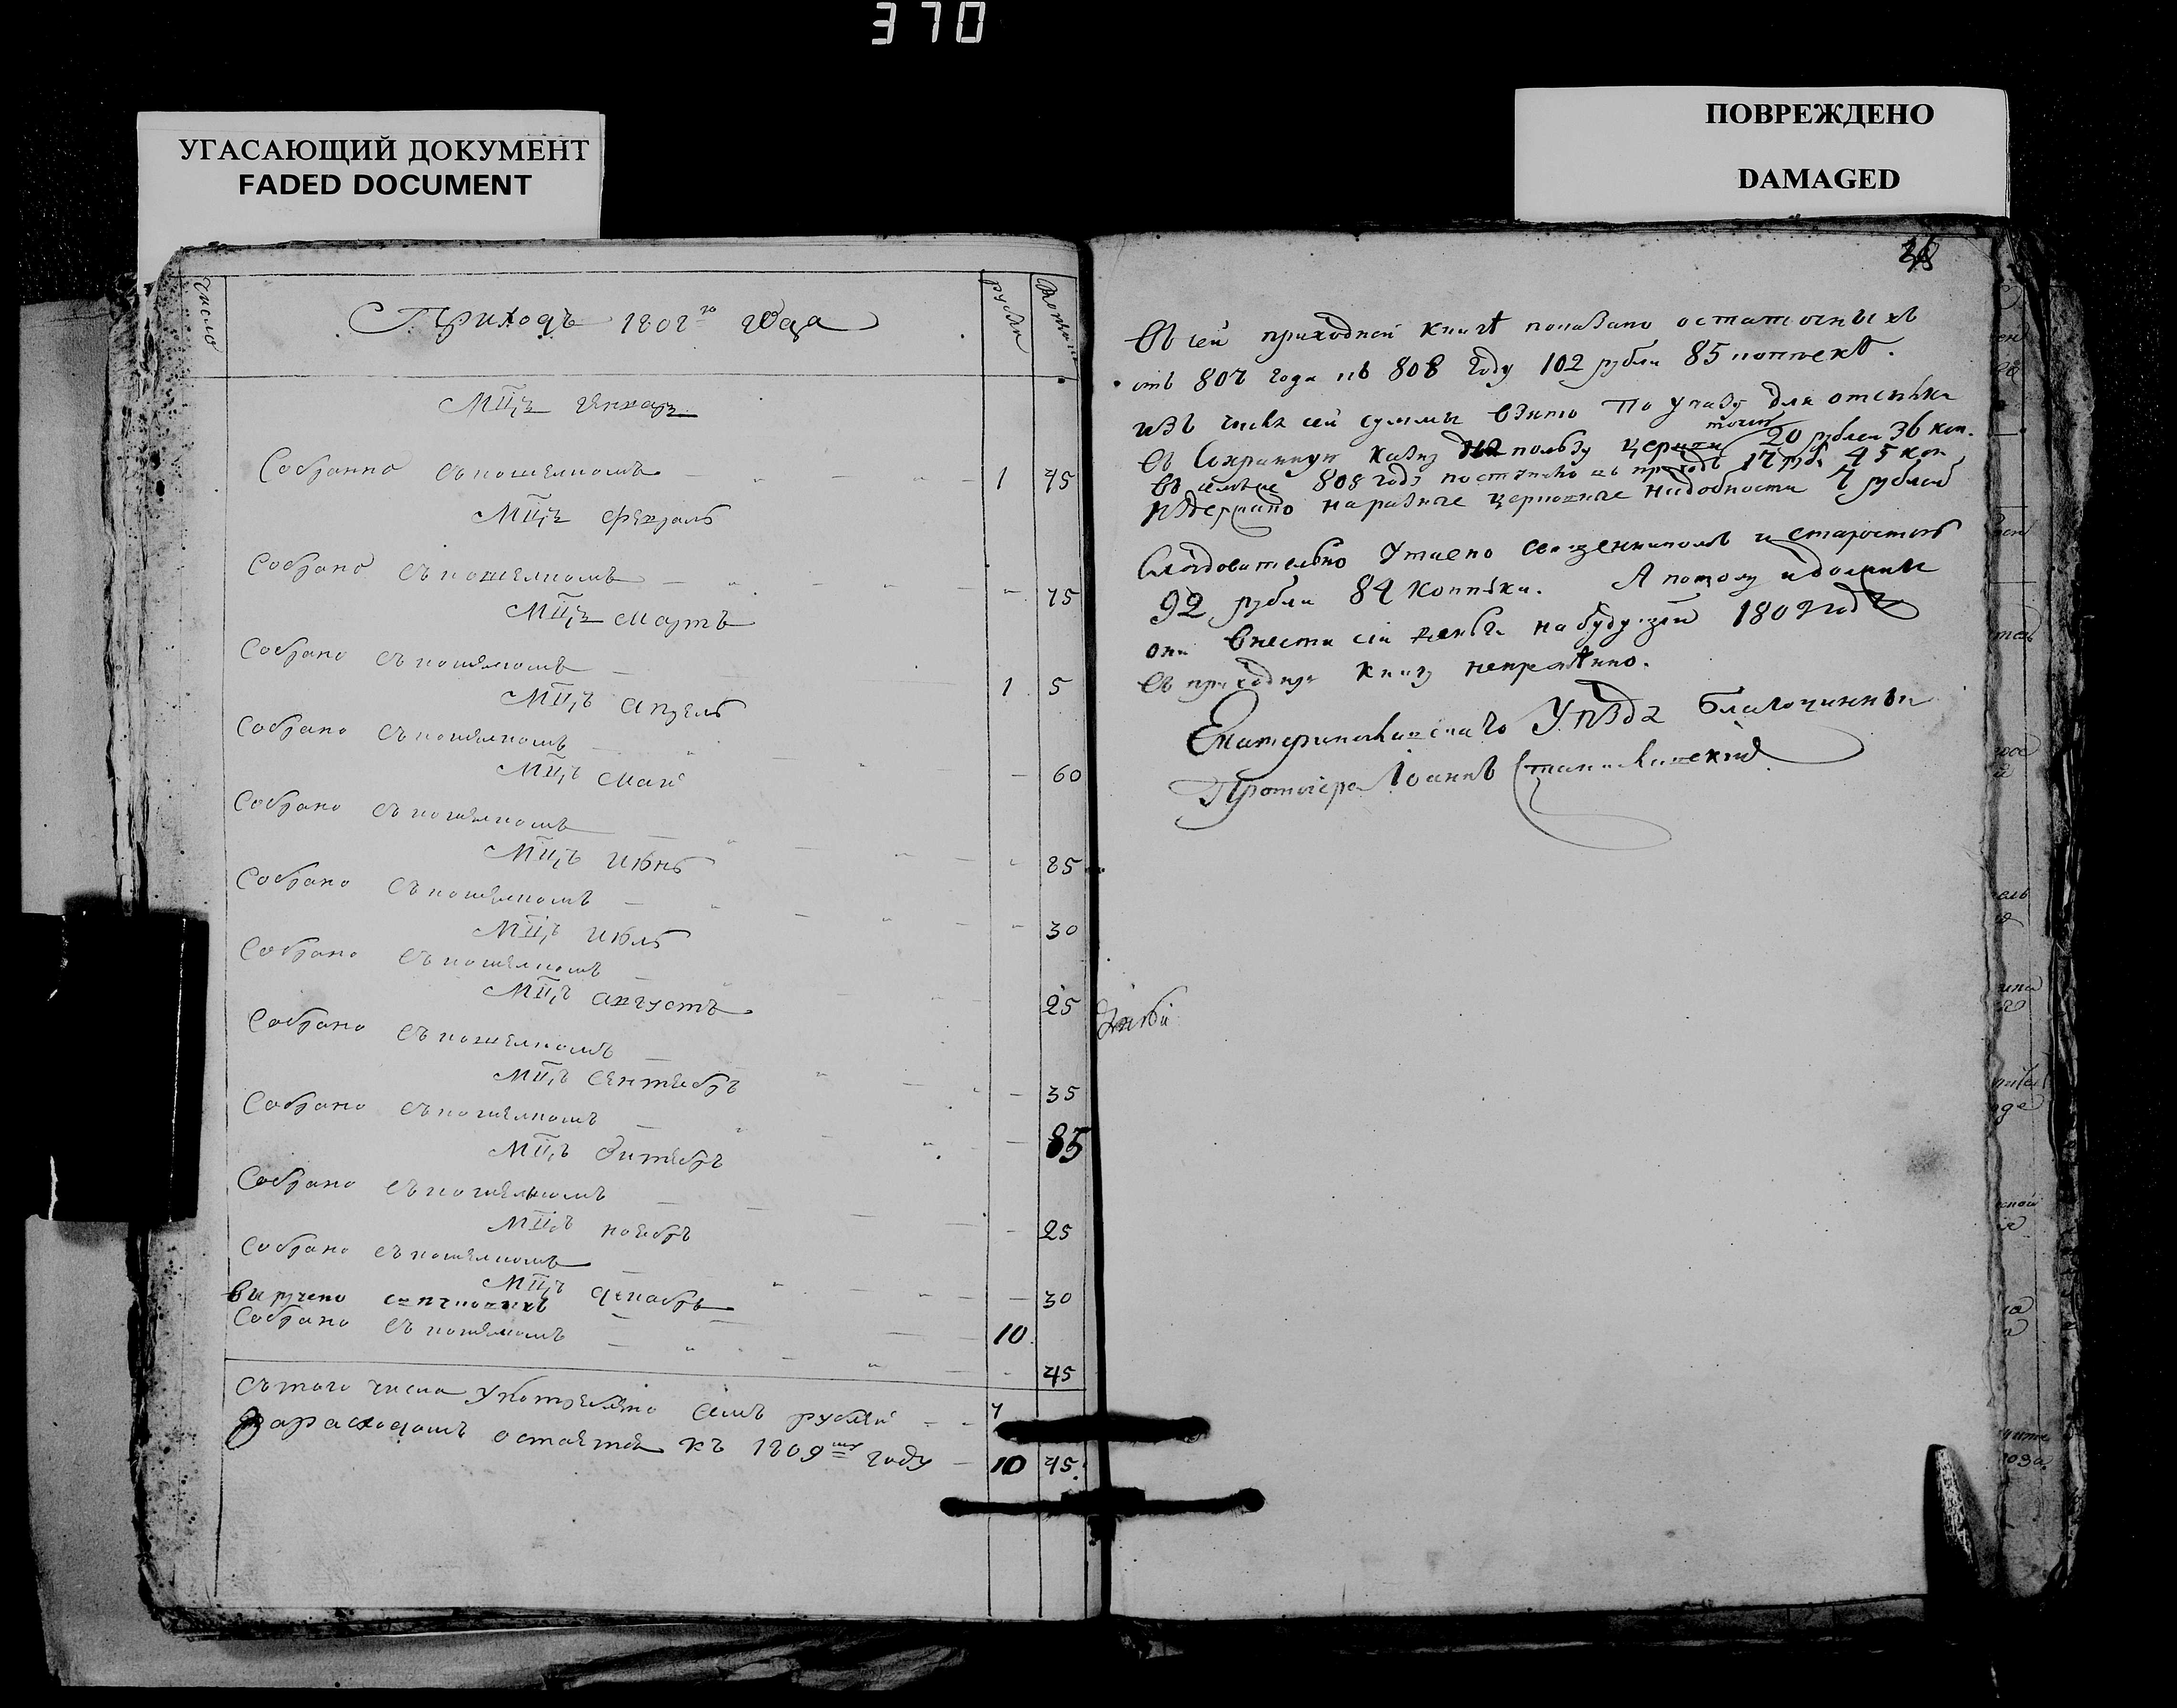 370
УГАСАЮЩИЙ ДОКУМЕНТ
FADED DOCUMENT
ПОВРЕЖДЕНО
DAMAGED
число
Приходъ 1808го года
рубли
копейки
Мцъ генварь
Собранно съ кошелкомъ 1 75
Мцъ февраль
Собрано съ кошелкомъ 75
Мцъ мартъ
Собрано съ кошелкомъ 1 5
Мцъ апрель
Собрано съ кошелкомъ 60
Мцъ май
Собрано съ кошелкомъ 85
Мцъ июнь
Собрано съ кошелкомъ 30
Мцъ июль
Собрано съ кошелкомъ 25
Мцъ августъ
Собрано съ кошелкомъ 35
Мцъ сентебръ
Собрано съ кошелкомъ 85
Мцъ октебръ
Собрано съ кошелкомъ 25
Мцъ ноебръ
Собрано съ кошелкомъ 30
Мцъ декабръ
выручено 10
Собрано съ кошелкомъ 45
Съ того числа употреблено семъ рублей 7
За расходомъ остаетса къ 1809му году 10 45
Въ сей приходной книгѣ показано остаточныхъ
отъ 807 года къ 808 году 102 рубли 85 коппекъ.
изъ числа сей суммы взято по указу для отсылки
въ Сохранную казну на пользу церкви 20 рублей 36 коп.
въ 808 году поступило въ приходъ 17 руб. 45 коп
издержано на разные церковные надобности 7 рублей
Слѣдовательно утаено священникомъ и старостою
92 рубли 84 коппѣки. А потому и должны
они внести сіи деньги на будущій 1809 годъ
въ приходную книгу непремѣнно.
Екатеринославскаго уѣзда благочинный
Протоіерей Іоаннъ Станиславскій